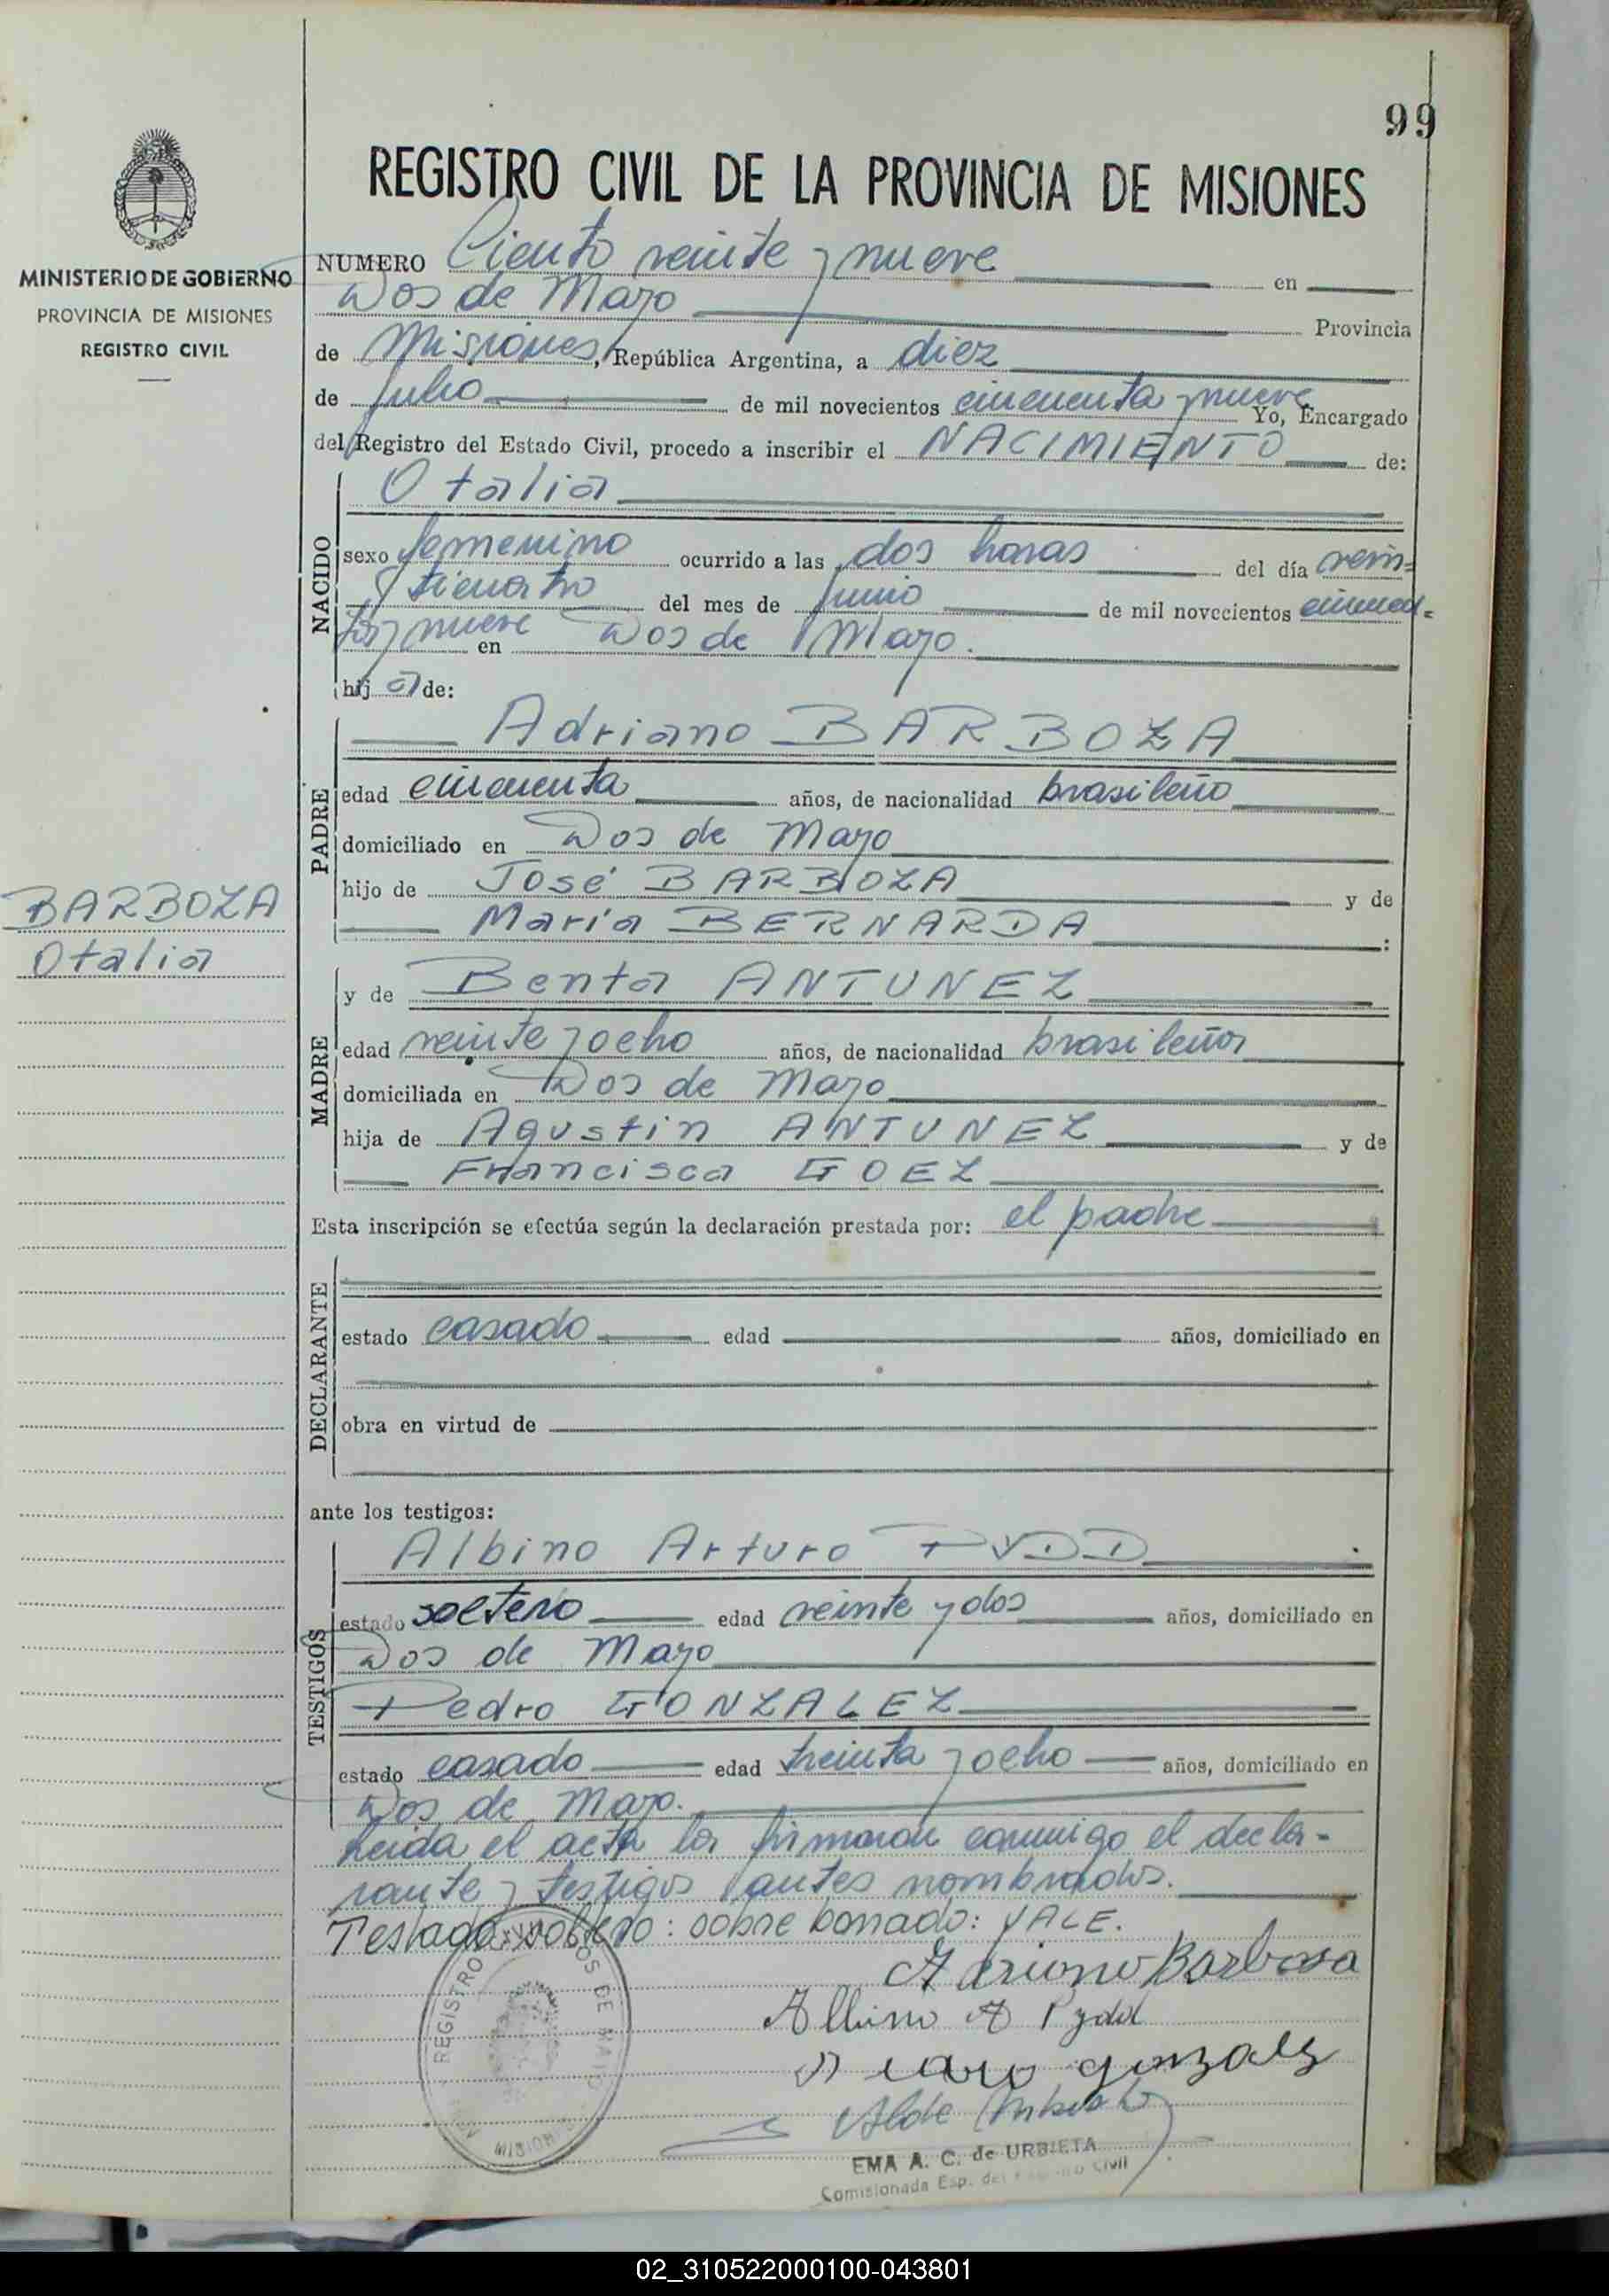 99
MINISTERIO DE GOBIERNO
PROVINCIA DE MISIONES
REGISTRO CIVIL
BARBOZA
Otalia
REGISTRO CIVIL DE LA PROVINCIA DE MISIONES
NUMERO Ciento veinte y nueve en
Dos de Mayo Provincia
de Misiones, República Argentina, a diez
de Julio de mil novecientos cincuenta y nueve Yo, Encargado
del Registro del Estado Civil, procedo a inscribir el NACIMIENTO de:
NACIDO
Otalia
sexo femenino ocurrido a las dos horas del día vein=
ticuatro del mes de Junio de mil novecientos cincuen=
ta y nueve en Dos de Mayo.
hij a de:
PADRE
Adriano BARBOZA
edad cincuenta años, de nacionalidad brasileño
domiciliado en Dos de Mayo
hijo de José BARBOZA y de
María BERNARDA :
MADRE
y de Benta ANTUNEZ
edad veinte y ocho años, de nacionalidad brasileña
domiciliada en Dos de Mayo
hija de Agustin ANTUNEZ y de
Francisca GOEZ
Esta inscripción se efectúa según la declaración prestada por: el padre
DECLARANTE
estado casado edad años, domiciliado en
obra en virtud de
ante los testigos:
TESTIGOS
Albino Arturo PYDD
estado soltero edad veinte y dos años, domiciliado en
Dos de Mayo
Pedro GONZALEZ
estado casado edad treinta y ocho años, domiciliado en
Dos de Mayo.
Leida el acta la firmaron conmigo el decla-
rante y testigos antes nombrados.
Testado: soltero: sobre borrado: VALE.
Adriano Barbosa
Albino A Pydd
gonzalez
REGISTRO DOS DE MAYO
EMA A. C. de URBIETA
Comisionada Esp. del Registro Civil
02_310522000100-043801